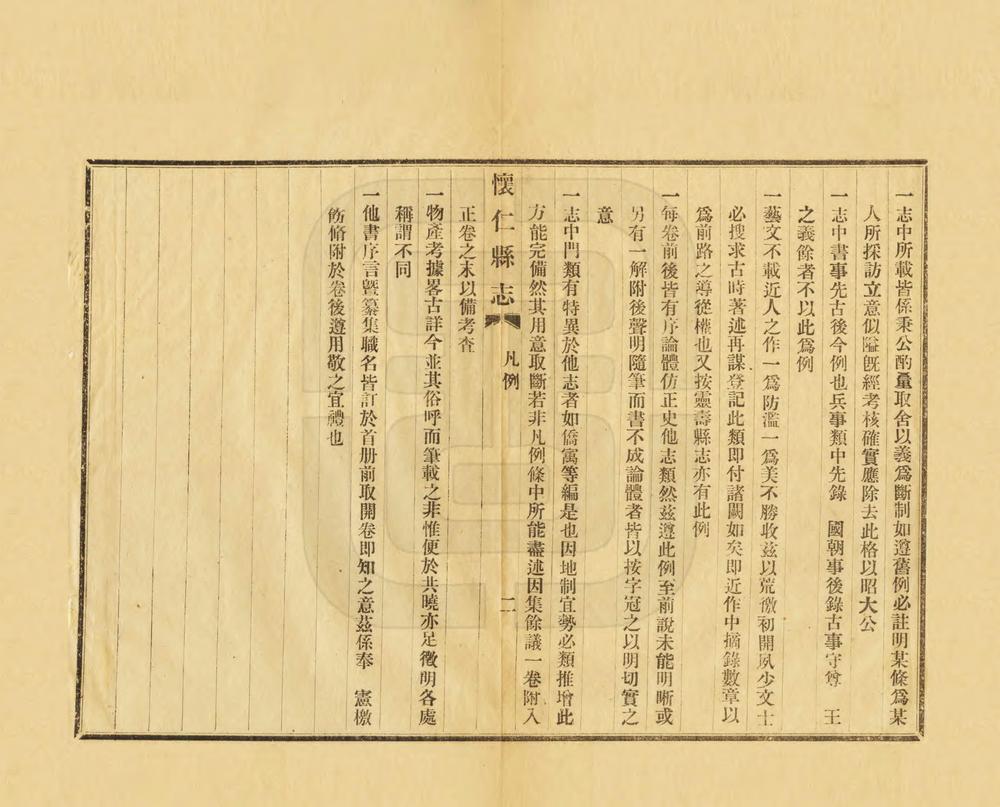 一志中所載皆係秉公酌量取舍以義爲斷制如遵舊例必註明某條爲某
人所採訪立意似隘既經考核確實應除去此格以昭大公
一志中書事先古後今例也兵事類中先錄　國朝事後錄古事守尊　王
之義餘者不以此爲例
一藝文不載近人之作一爲防濫一爲美不勝收茲以荒徼初開夙少文士
必搜求古時著述再謀登記此類即付諸闕如矣即近作中摘錄數章以
爲前路之導從權也又按靈壽縣志亦有此例
一每卷前後皆有序論體仿正史他志類然茲遵此例至前說未能明晰或
另有一解附後聲明隨筆而書不成論體者皆以按字冠之以明切實之
意
一志中門類有特異於他志者如僑寓等編是也因地制宜勢必類推增此
方能完備然其用意取斷若非凡例條中所能盡述因集餘議一卷附入
懷仁縣志　凡例　二
正卷之末以備考查
一物產考據畧古詳今並其俗呼而筆載之非惟便於共曉亦足徵明各處
稱謂不同
一他書序言曁纂集職名皆訂於首册前取開卷即知之意茲係奉　憲檄
飭脩附於卷後遵用敬之宜禮也